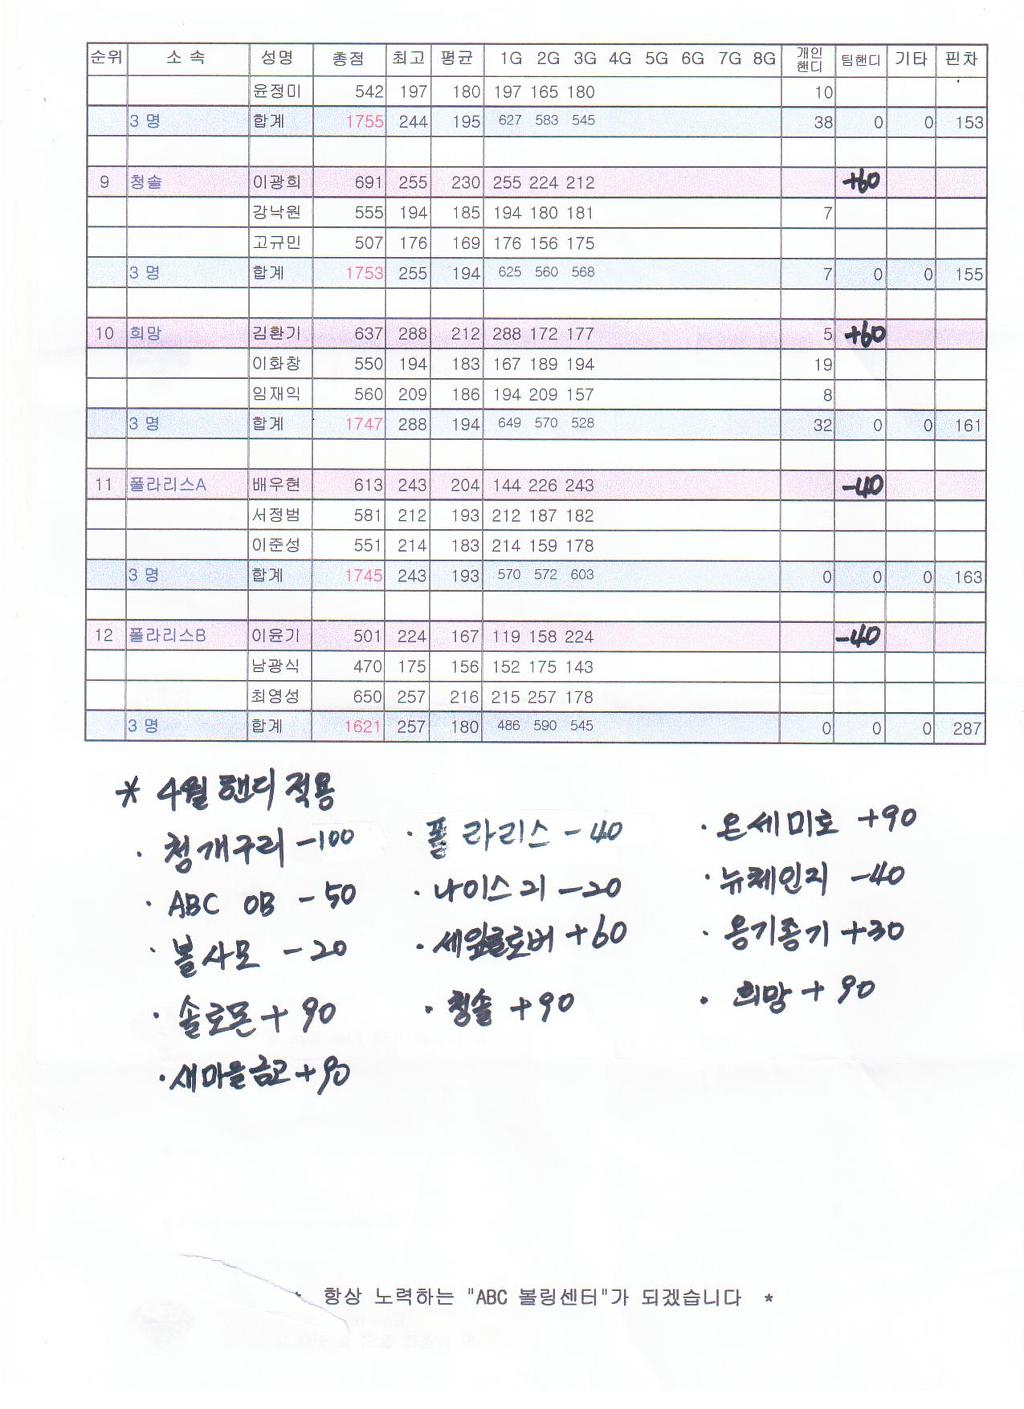 순위 소 속 성명 총점 최고 평균 1G 2G 3G 4G 5G 6G 7G 8G 개인핸디 팀핸디 기타 핀차
윤정미 542 197 180 197 165 180 10
3 명 합계 1755 244 195 627 583 545 38 0 0 153
9 청솔 이광희 691 255 230 255 224 212 +60
강낙원 555 194 185 194 180 181 7
고규민 507 176 169 176 156 175
3 명 합계 1753 255 194 625 560 568 7 0 0 155
10 희망 김환기 637 288 212 288 172 177 5 +60
이화창 550 194 183 167 189 194 19
임재익 560 209 186 194 209 157 8
3 명 합계 1747 288 194 649 570 528 32 0 0 161
11 폴라리스A 배우현 613 243 204 144 226 243 -40
서정범 581 212 193 212 187 182
이준성 551 214 183 214 159 178
3 명 합계 1745 243 193 570 572 603 0 0 0 163
12 폴라리스B 이윤기 501 224 167 119 158 224 -40
남광식 470 175 156 152 175 143
최영성 650 257 216 215 257 178
3 명 합계 1621 257 180 486 590 545 0 0 0 287
* 4월 핸디 적용
· 청개구리 -100 · 폴라리스 -40 · 온세미로 +90
· ABC OB -50 · 나이스리 -20 · 뉴체인지 -40
· 볼사모 -20 · 세잎클로버 +60 · 옹기종기 +30
· 솔로몬 +90 · 청솔 +90 · 희망 +90
· 새마을금고 +90
* 항상 노력하는 "ABC 볼링센터"가 되겠습니다 *